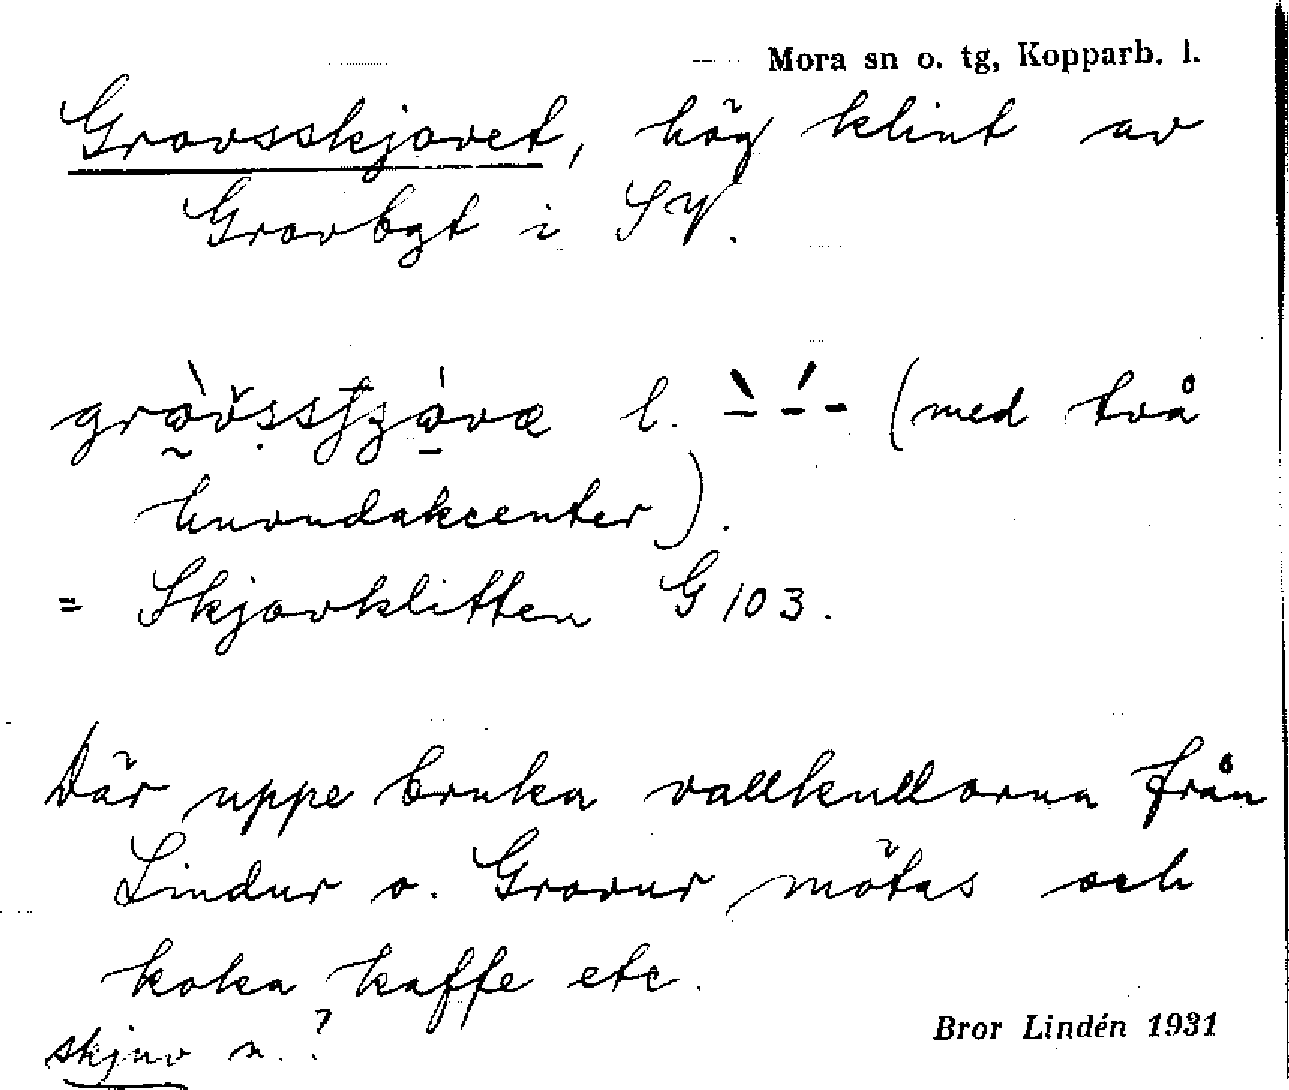 Mora sn o. tg, Kopparb. l.
Gravsskjovet, hög klint av
Gravbgt i SV.
l. (med två
huvudakcenter).
= Skjovklitten G 103.
Där uppe bruka vallkullorna från
Lindur o. Gravur mötas och
koka kaffe etc.
skjuv n. ?
Bror Lindén 1931